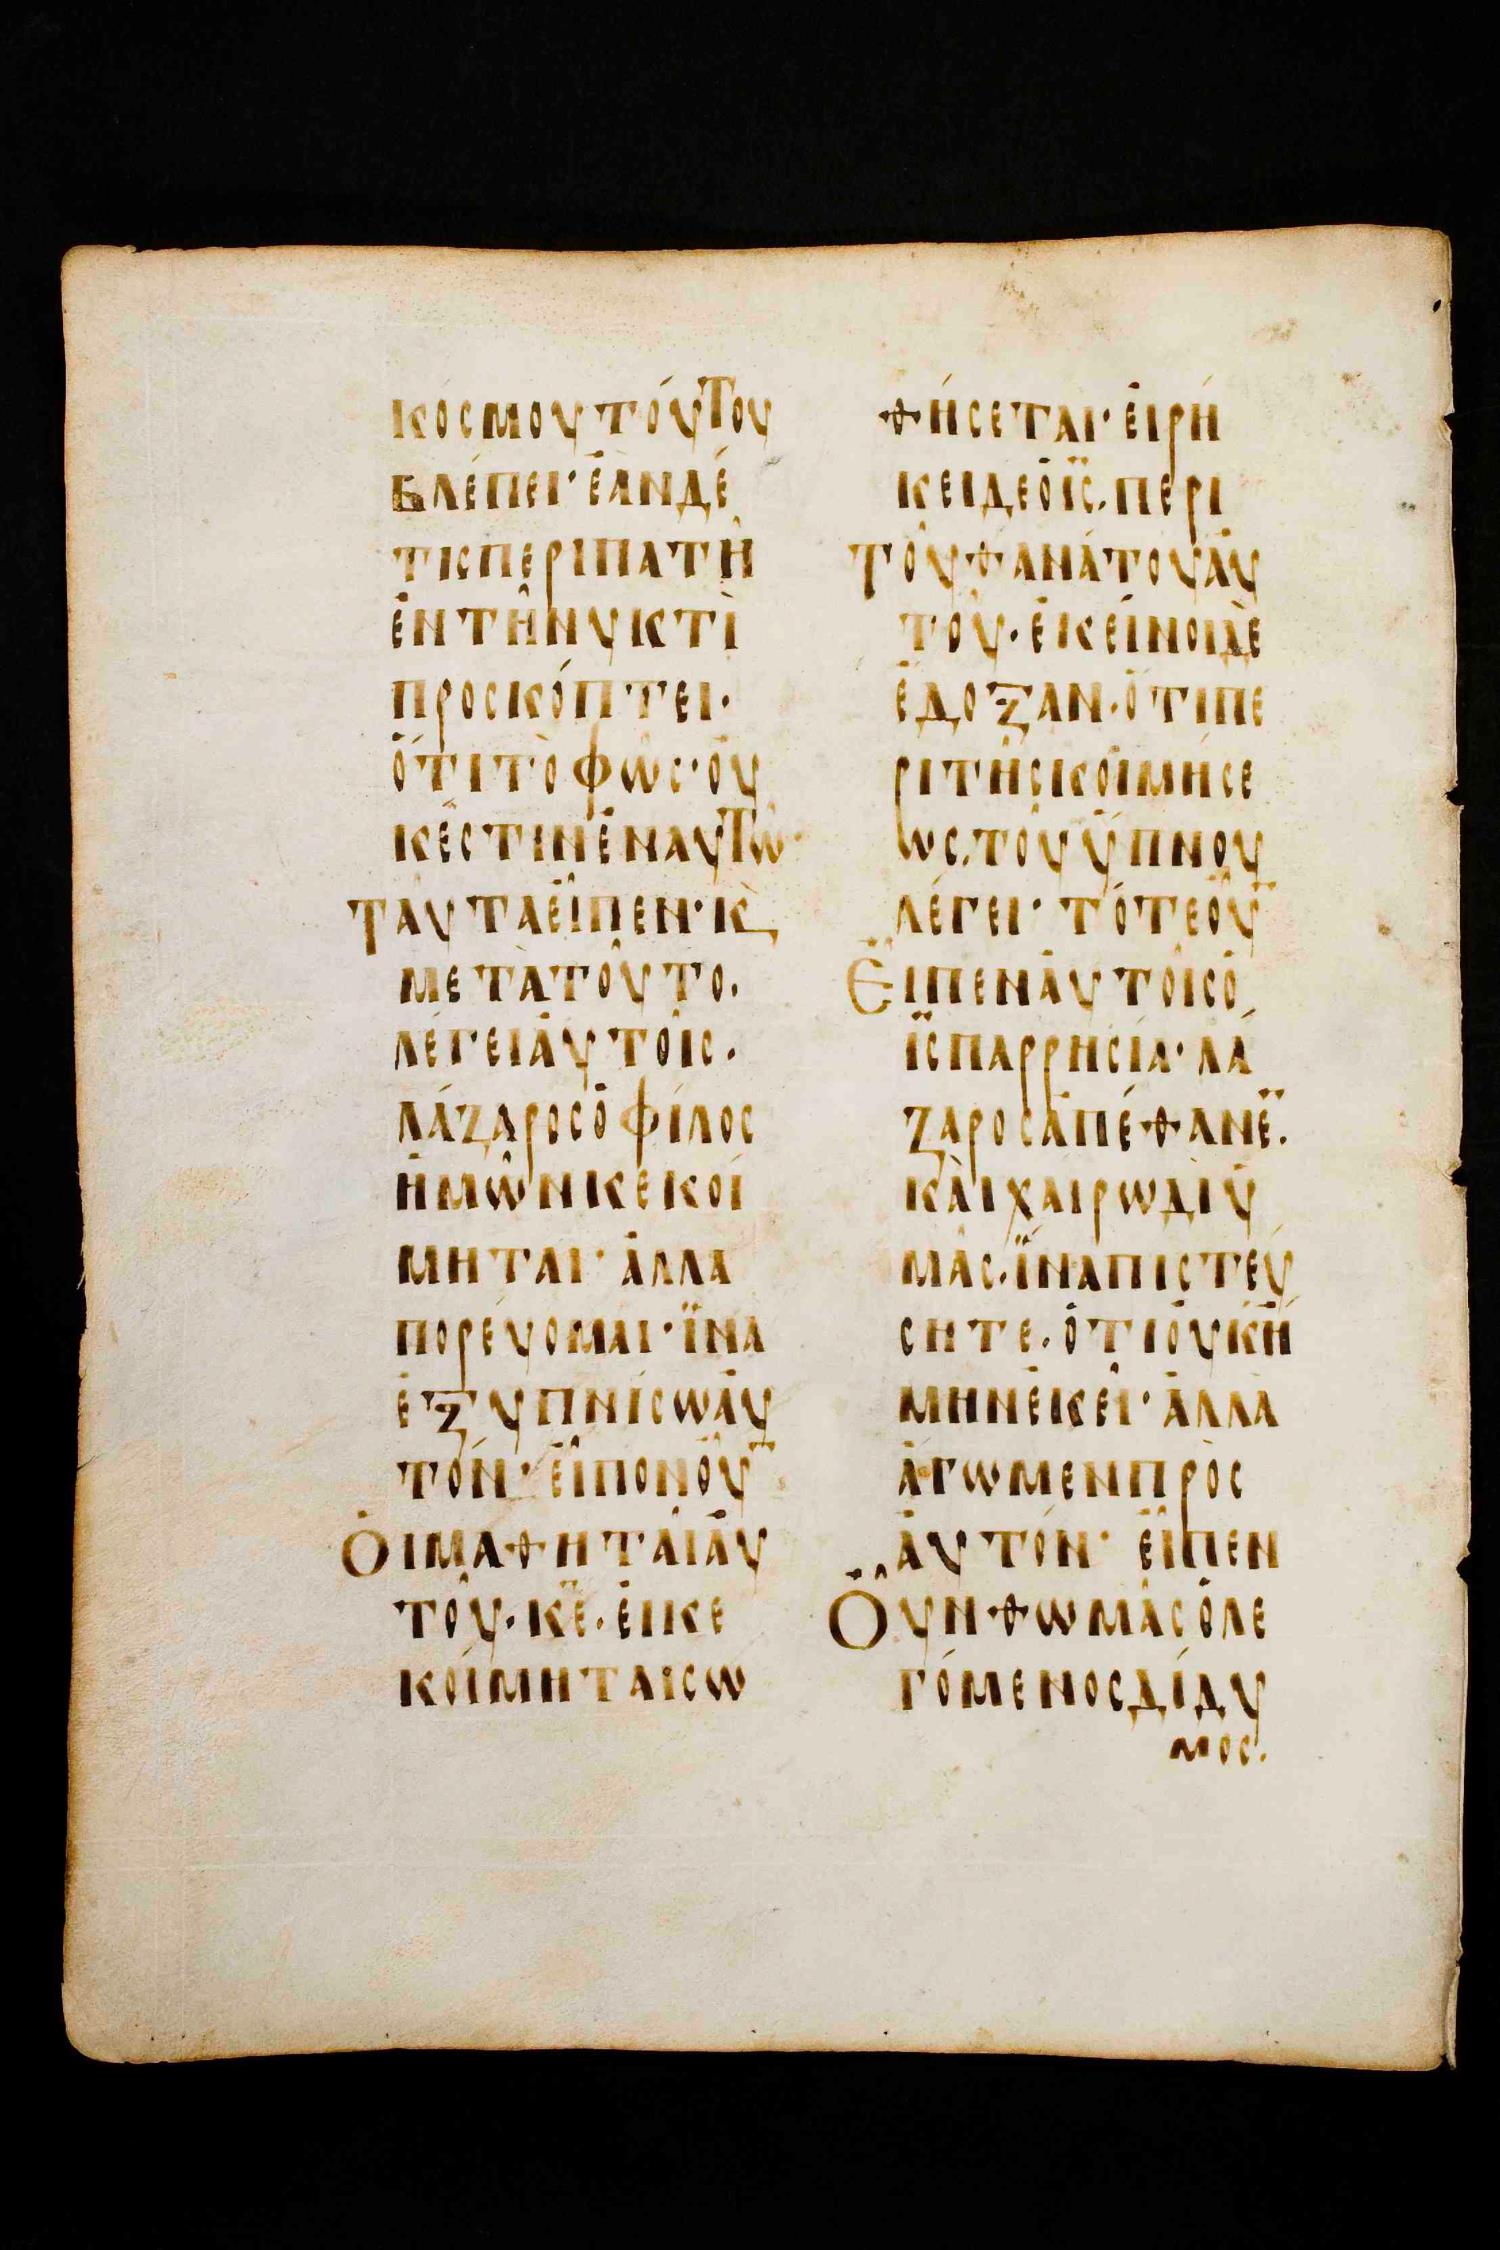 κόσμου τούτου
βλέπει· ἐὰν δέ
τις περιπατῆ
ἐν τῆ νυκτὶ
προσκόπτει·
ὅτι τὸ φῶς· οὐ
κ ἔστιν ἐν αυτῶ·
Ταῦτα εἶπεν· κ̀
μετὰ τοῦτο.
λέγει ἀυτοῖς.
λάζαρος ὁ φίλος
ἡμῶν κεκοί
μηται· ἀλλα
πορέυομαι· ἵνα
ἐξυπνίσω ἀυ
τόν· εἶπον οὖ̅
Ὁι μαθηταὶ ἀυ
τοῦ. κ̅ε̅. ἐι κε
κοίμηται σω
θήσεται· ἐιρή
κει δε ὁ ι̅ς̅. περι
Τοῦ θανάτου ἀυ
τοῦ. ἐκεῖνοι δὲ
ἐδοξαν. ὅτι πε
ρι τῆς κοιμήσε
ως. τοῦ ὕπνου
λέγει· τότε οὖ̅
Ἐιπεν ἀυτοῖς ὁ
ι̅ς̅ παρρησία· λά
ζαρος ἀπέθανε̈.
κὰι χαίρω δι ὑ
μᾶς. ἵνα πιστέυ
σητε. ὅτι οὐκ ἤ
μην ἐκεῖ· ἀλλὰ
ἄγωμεν πρὸς
ἀυτόν· εἶπεν
Οὖν θωμᾶς ὁ λε
γόμενος δίδυ
μος.